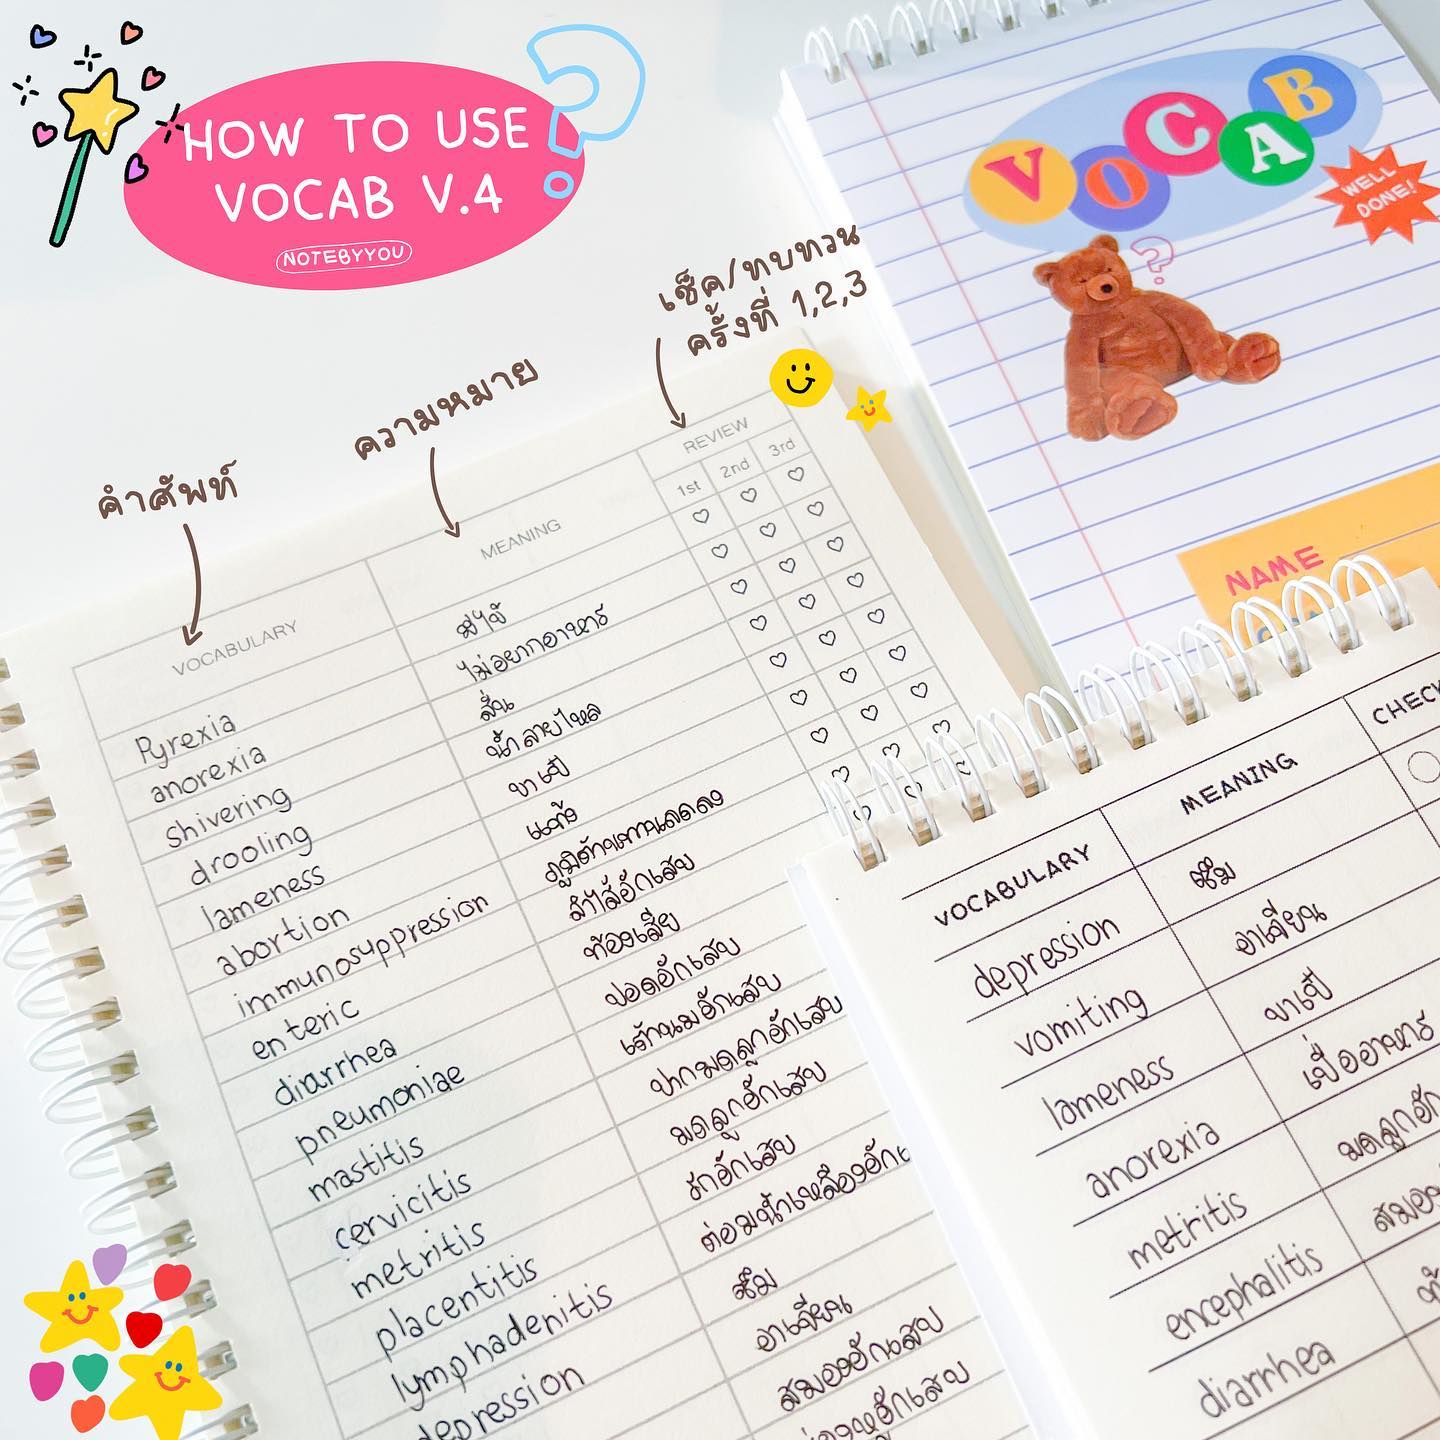 HOW TO USE
VOCAB V.4
NOTEBYYOU
?
VOCAB
WELL
DONE!
?
NAME
เช็ค/ทบทวน
ครั้งที่ 1,2,3
ความหมาย
คำศัพท์
VOCABULARY MEANING REVIEW
1st 2nd 3rd
Pyrexia มีไข้
anorexia ไม่อยากอาหาร
shivering สั่น
drooling น้ำลายไหล
lameness ขาเป๋
abortion แท้ง
immunosuppression ภูมิต้านทานลดลง
enteric ลำไส้อักเสบ
diarrhea ท้องเสีย
pneumoniae ปอดอักเสบ
mastitis เต้านมอักเสบ
cervicitis ปากมดลูกอักเสบ
metritis มดลูกอักเสบ
placentitis รกอักเสบ
lymphadenitis ต่อมน้ำเหลืองอักเ
depression ซึม
อาเจียน
สมองอักเสบ
VOCABULARY MEANING CHECK
depression ซึม
vomiting อาเจียน
lameness ขาเป๋
anorexia เบื่ออาหาร
metritis มดลูกอัก
encephalitis สมอง
diarrhea